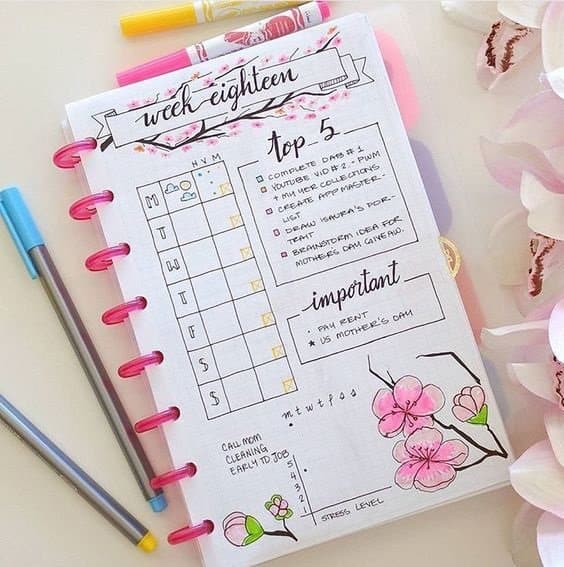 week eighteen
H V M
M
T
W
T
F
S
S
top 5
COMPLETE # 1
YOUTUBE VID # 2 - PWM
+ MY COLLECTIONS
CREATE APP MASTER-
LIST
DRAW ISAURA'S POR-
TRAIT
BRAINSTORM IDEA FOR
MOTHER'S DAY GIVEAW.
important
PAY RENT
US MOTHER'S DAY
m t w t f s s
CALL MOM
CLEANING
EARLY TO JOB
5
4
3
2
1
STRESS LEVEL